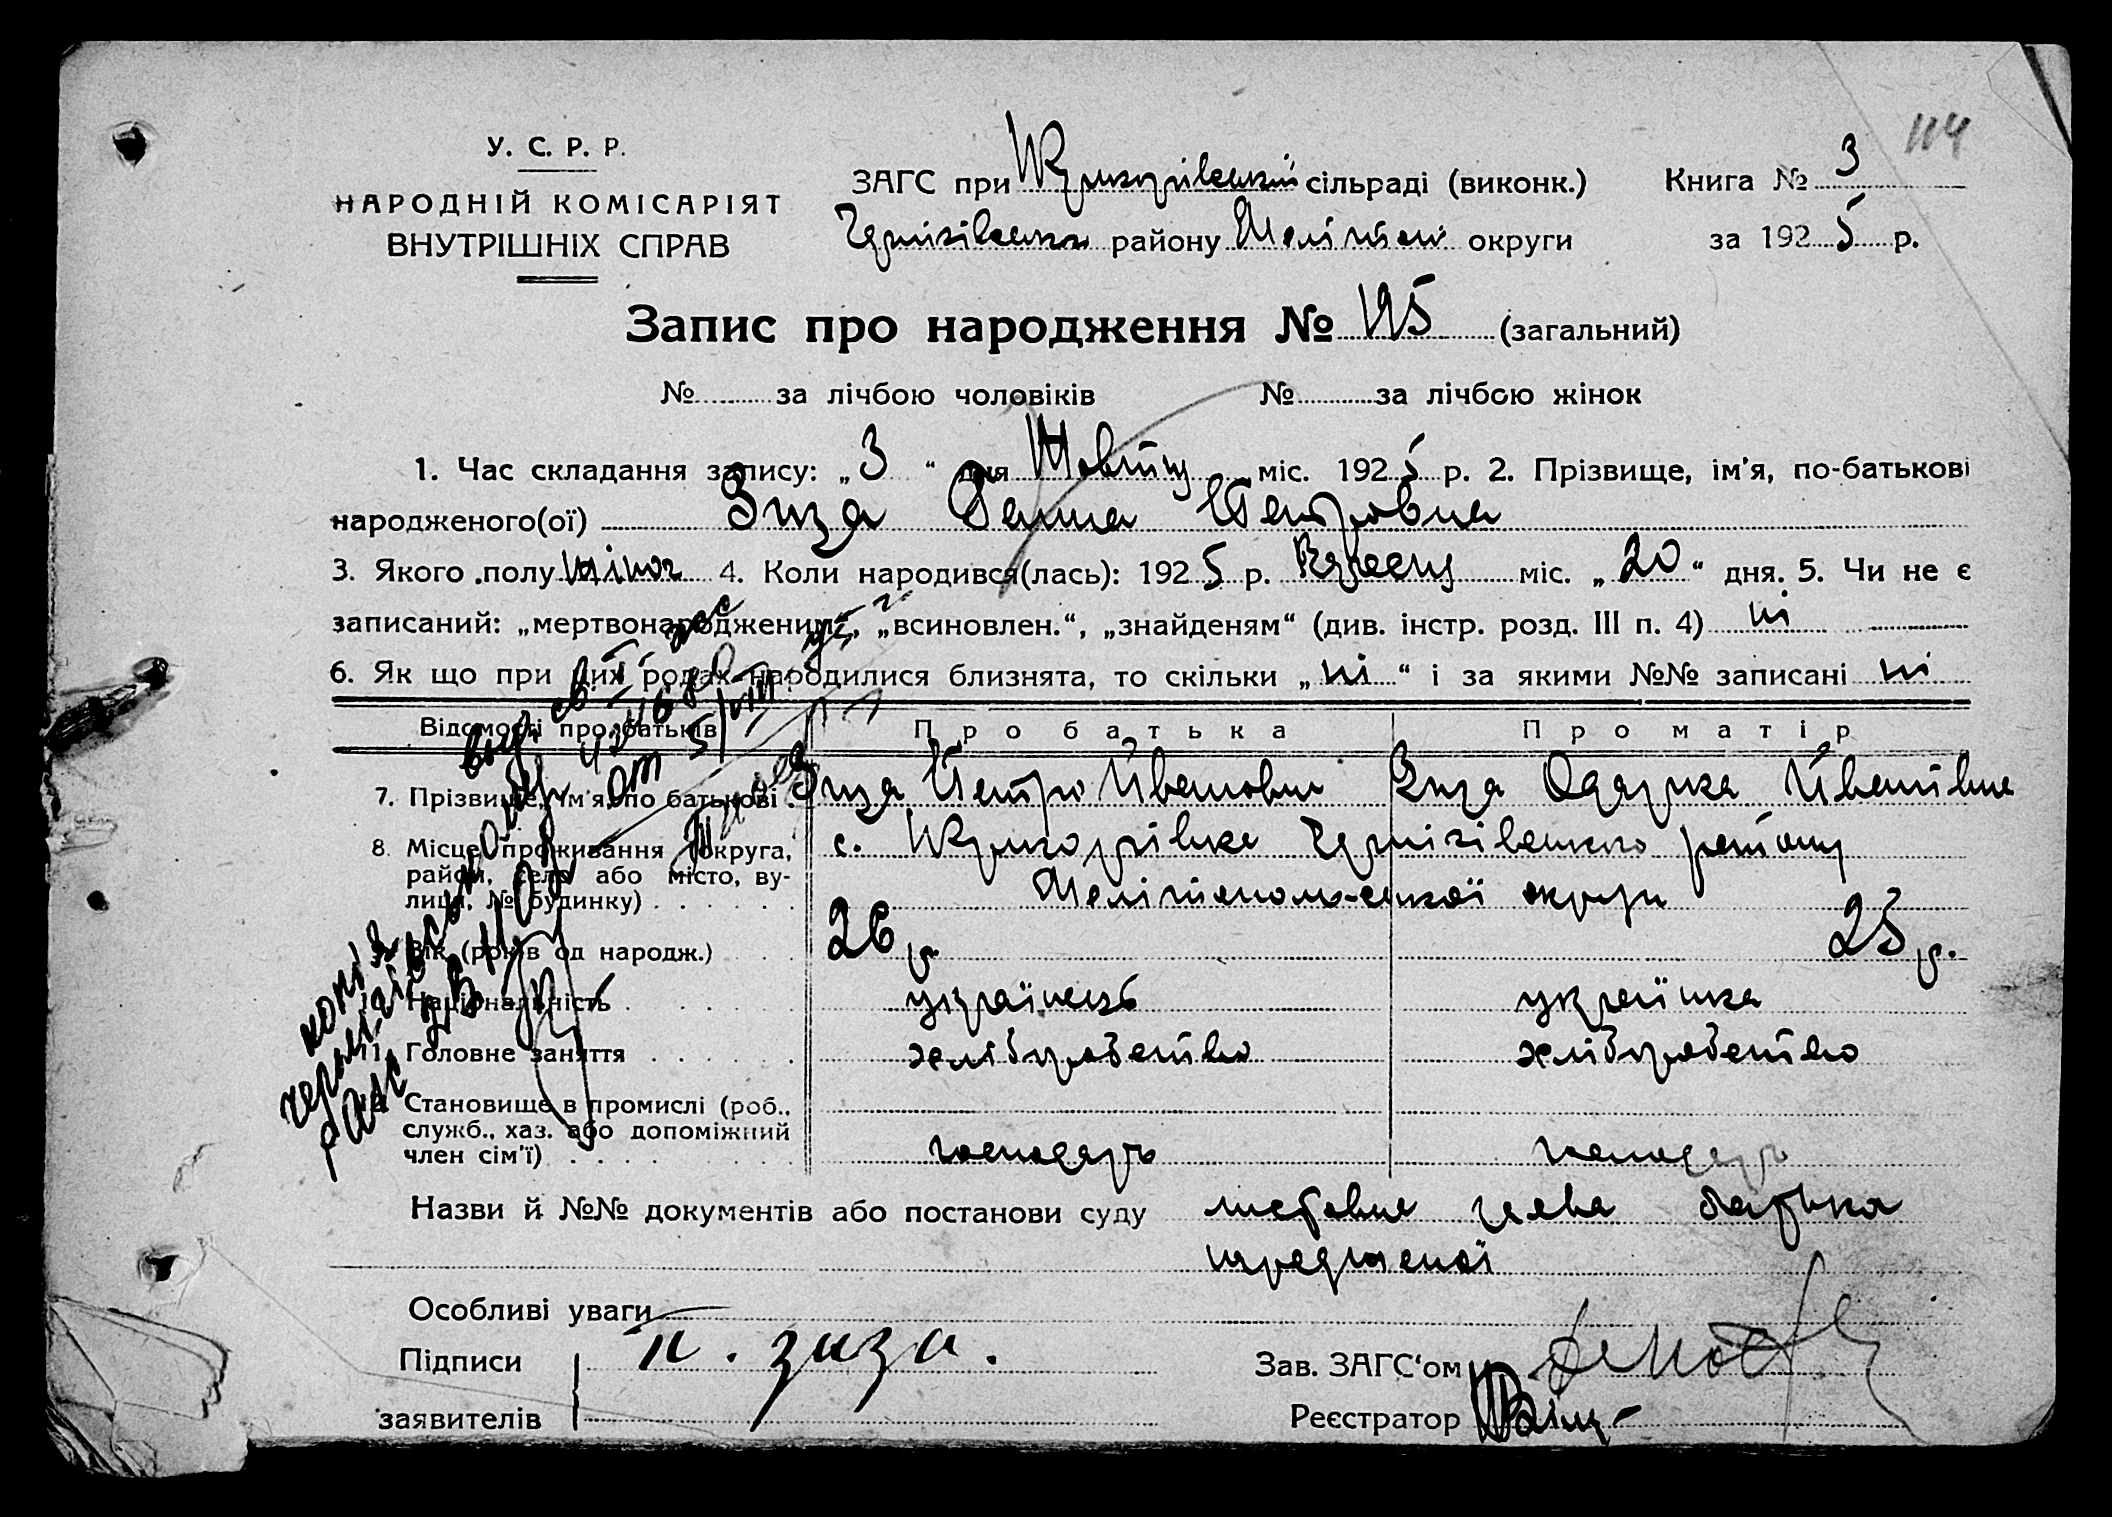 114
У. С. Р. Р.
НАРОДНІЙ КОМІСАРІЯТ
ВНУТРІШНІХ СПРАВ
ЗАГС при сільраді (виконк.)
Книга № 3
району округи
за 1925 р.
Запис про народження № 195 (загальний)
№ за лічбою чоловіків № за лічбою жінок
1. Час складання запису: „3“ дня Жовтня міс. 1925 р. 2. Прізвище, ім'я, по-батькові
народженого(ої) Зиза Ганна Петровна
3. Якого полу жіноч 4. Коли народився(лась): 1925 р. міс. „20“ дня. 5. Чи не є
записаний: „мертвонародженим“, „всиновлен.“, „знайденям“ (див. інстр. розд. III п. 4) ні
6. Як що при цих родах народилися близнята, то скільки „ні“ і за якими №№ записані ні
Відомості про батьків Про батька Про матір
7. Прізвище, ім'я, по батькові Зиза Петро Иванович Зиза Одарка Иванівна
8. Місце проживання (округа, с. Чернігівського району
район, село або місто, ву-
лиця, № будинку) Мелітопольської округи
9. Вік (років од народж.) 26 р. 25 р.
10. Національність українець українка
11. Головне заняття хліборобство хліборобство
12. Становище в промислі (роб.,
служб., хаз. або допоміжний
член сім'ї) господарь господарь
Назви й №№ документів або постанови суду заява батька
Особливі уваги
Підписи п. зиза. Зав. ЗАГС‘ом
заявителів Реєстратор